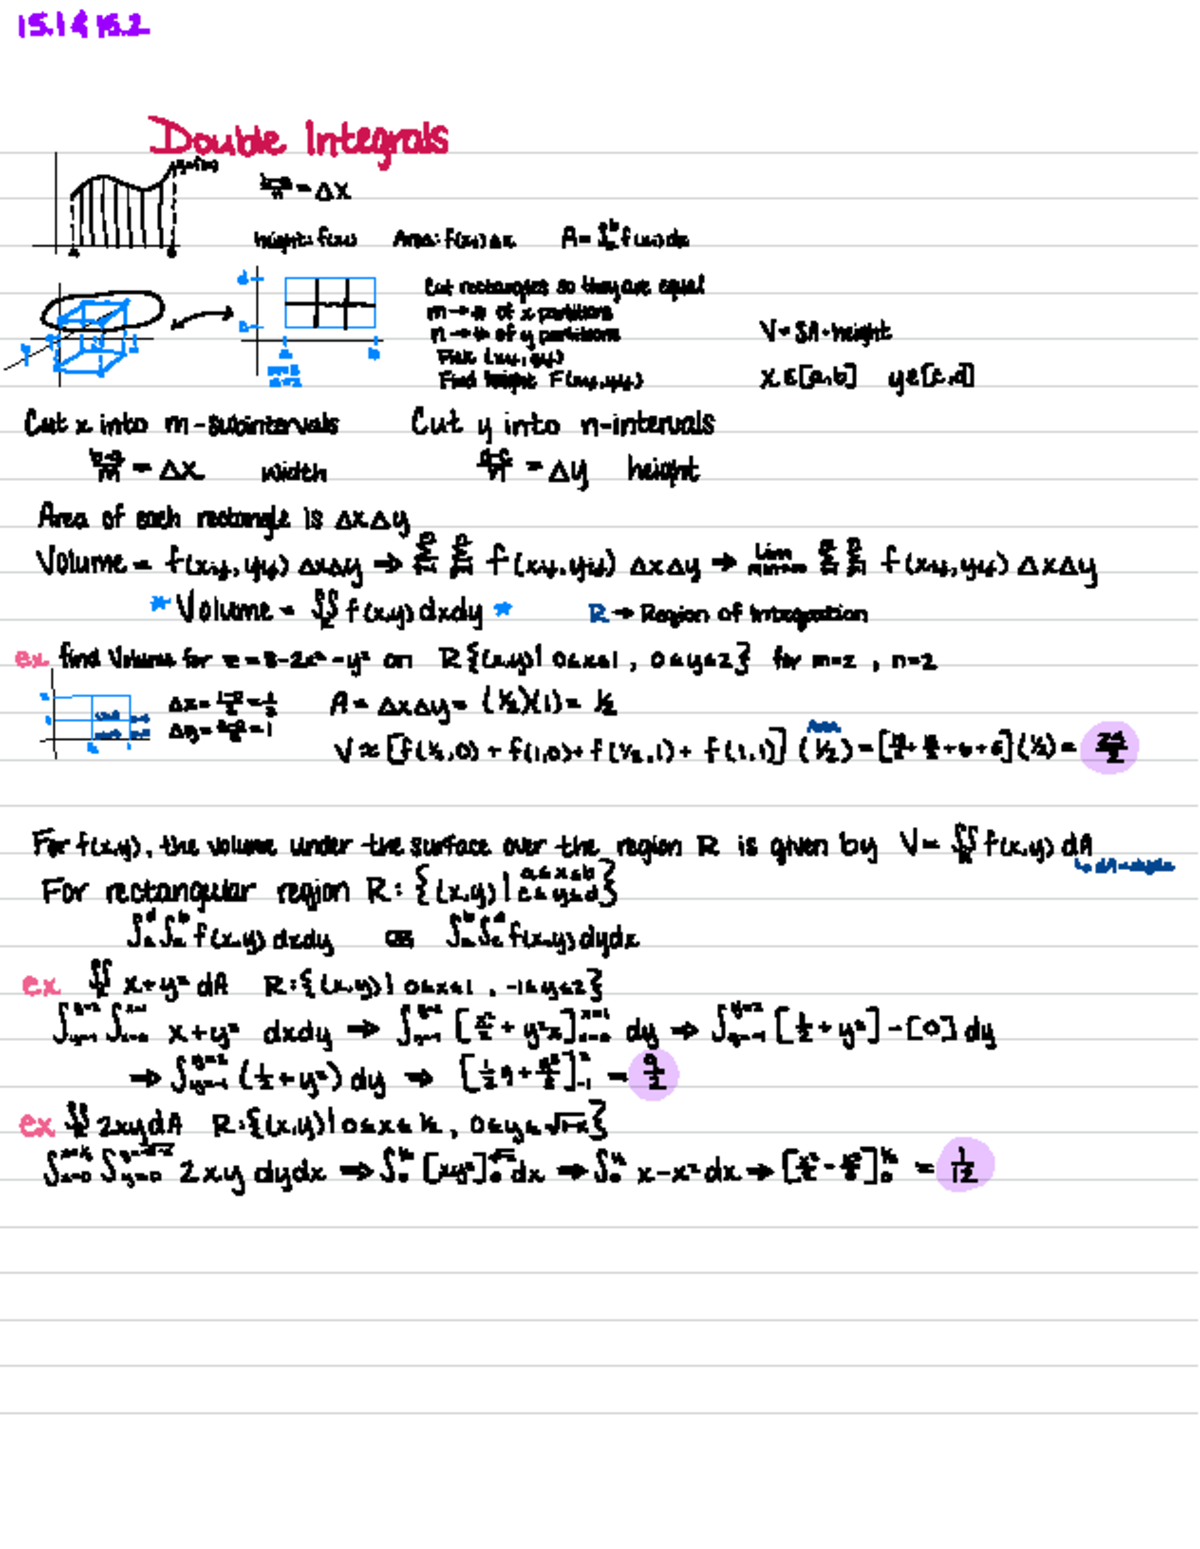 15.1 & 15.2
Double Integrals
y=f(x)
b-a/n = Δx
height: f(xi) Area: f(xi)Δx A = ∫ₐᵇ f(x) dx
Cut rectangles so they are equal
m → # of x partitions
n → # of y partitions
Pick (xij, yij)
Find height F(xij, yij)
V = SA · height
x ∈ [a,b] y ∈ [c,d]
Cut x into m-subintervals Cut y into n-intervals
b-a/m = Δx width d-c/n = Δy height
Area of each rectangle is ΔxΔy
Volume = f(xij, yij) ΔxΔy → ΣΣ f(xij, yij) ΔxΔy → lim ΣΣ f(xij, yij) ΔxΔy
* Volume = ∬ f(x,y) dxdy * R → Region of Integration
ex find Volume for z = 8-2x²-y² on R{(x,y)| 0≤x≤1, 0≤y≤2} for m=2, n=2
Δx = 1-0/2 = 1/2 A = ΔxΔy = (½)(1) = ½
Δy = 2-0/2 = 1
V ≈ [f(½,0) + f(1,0) + f(½,1) + f(1,1)] (½) = [ + 6 + ](½) =
Area
For f(x,y), the volume under the surface over the region R is given by V = ∬ f(x,y) dA
↳ dA = dxdy
For rectangular region R: {(x,y)| a≤x≤b c≤y≤d}
∫ ∫ f(x,y) dxdy OR ∫ ∫ f(x,y) dydx
ex ∬ x+y² dA R:{(x,y)| 0≤x≤1, -1≤y≤2}
∫ ∫ x+y² dxdy ⇒ ∫ [x²/2 + y²x] dy ⇒ ∫ [½+y²]-[0] dy
⇒ ∫ (½+y²) dy ⇒ [½y + y³/3] = 9/2
ex ∬ 2xydA R:{(x,y)| 0≤x≤½, 0≤y≤√1-x}
∫ ∫ 2xy dydx ⇒ ∫ [xy²] dx ⇒ ∫ x-x² dx ⇒ [x²/2 - x³/3] = 1/12